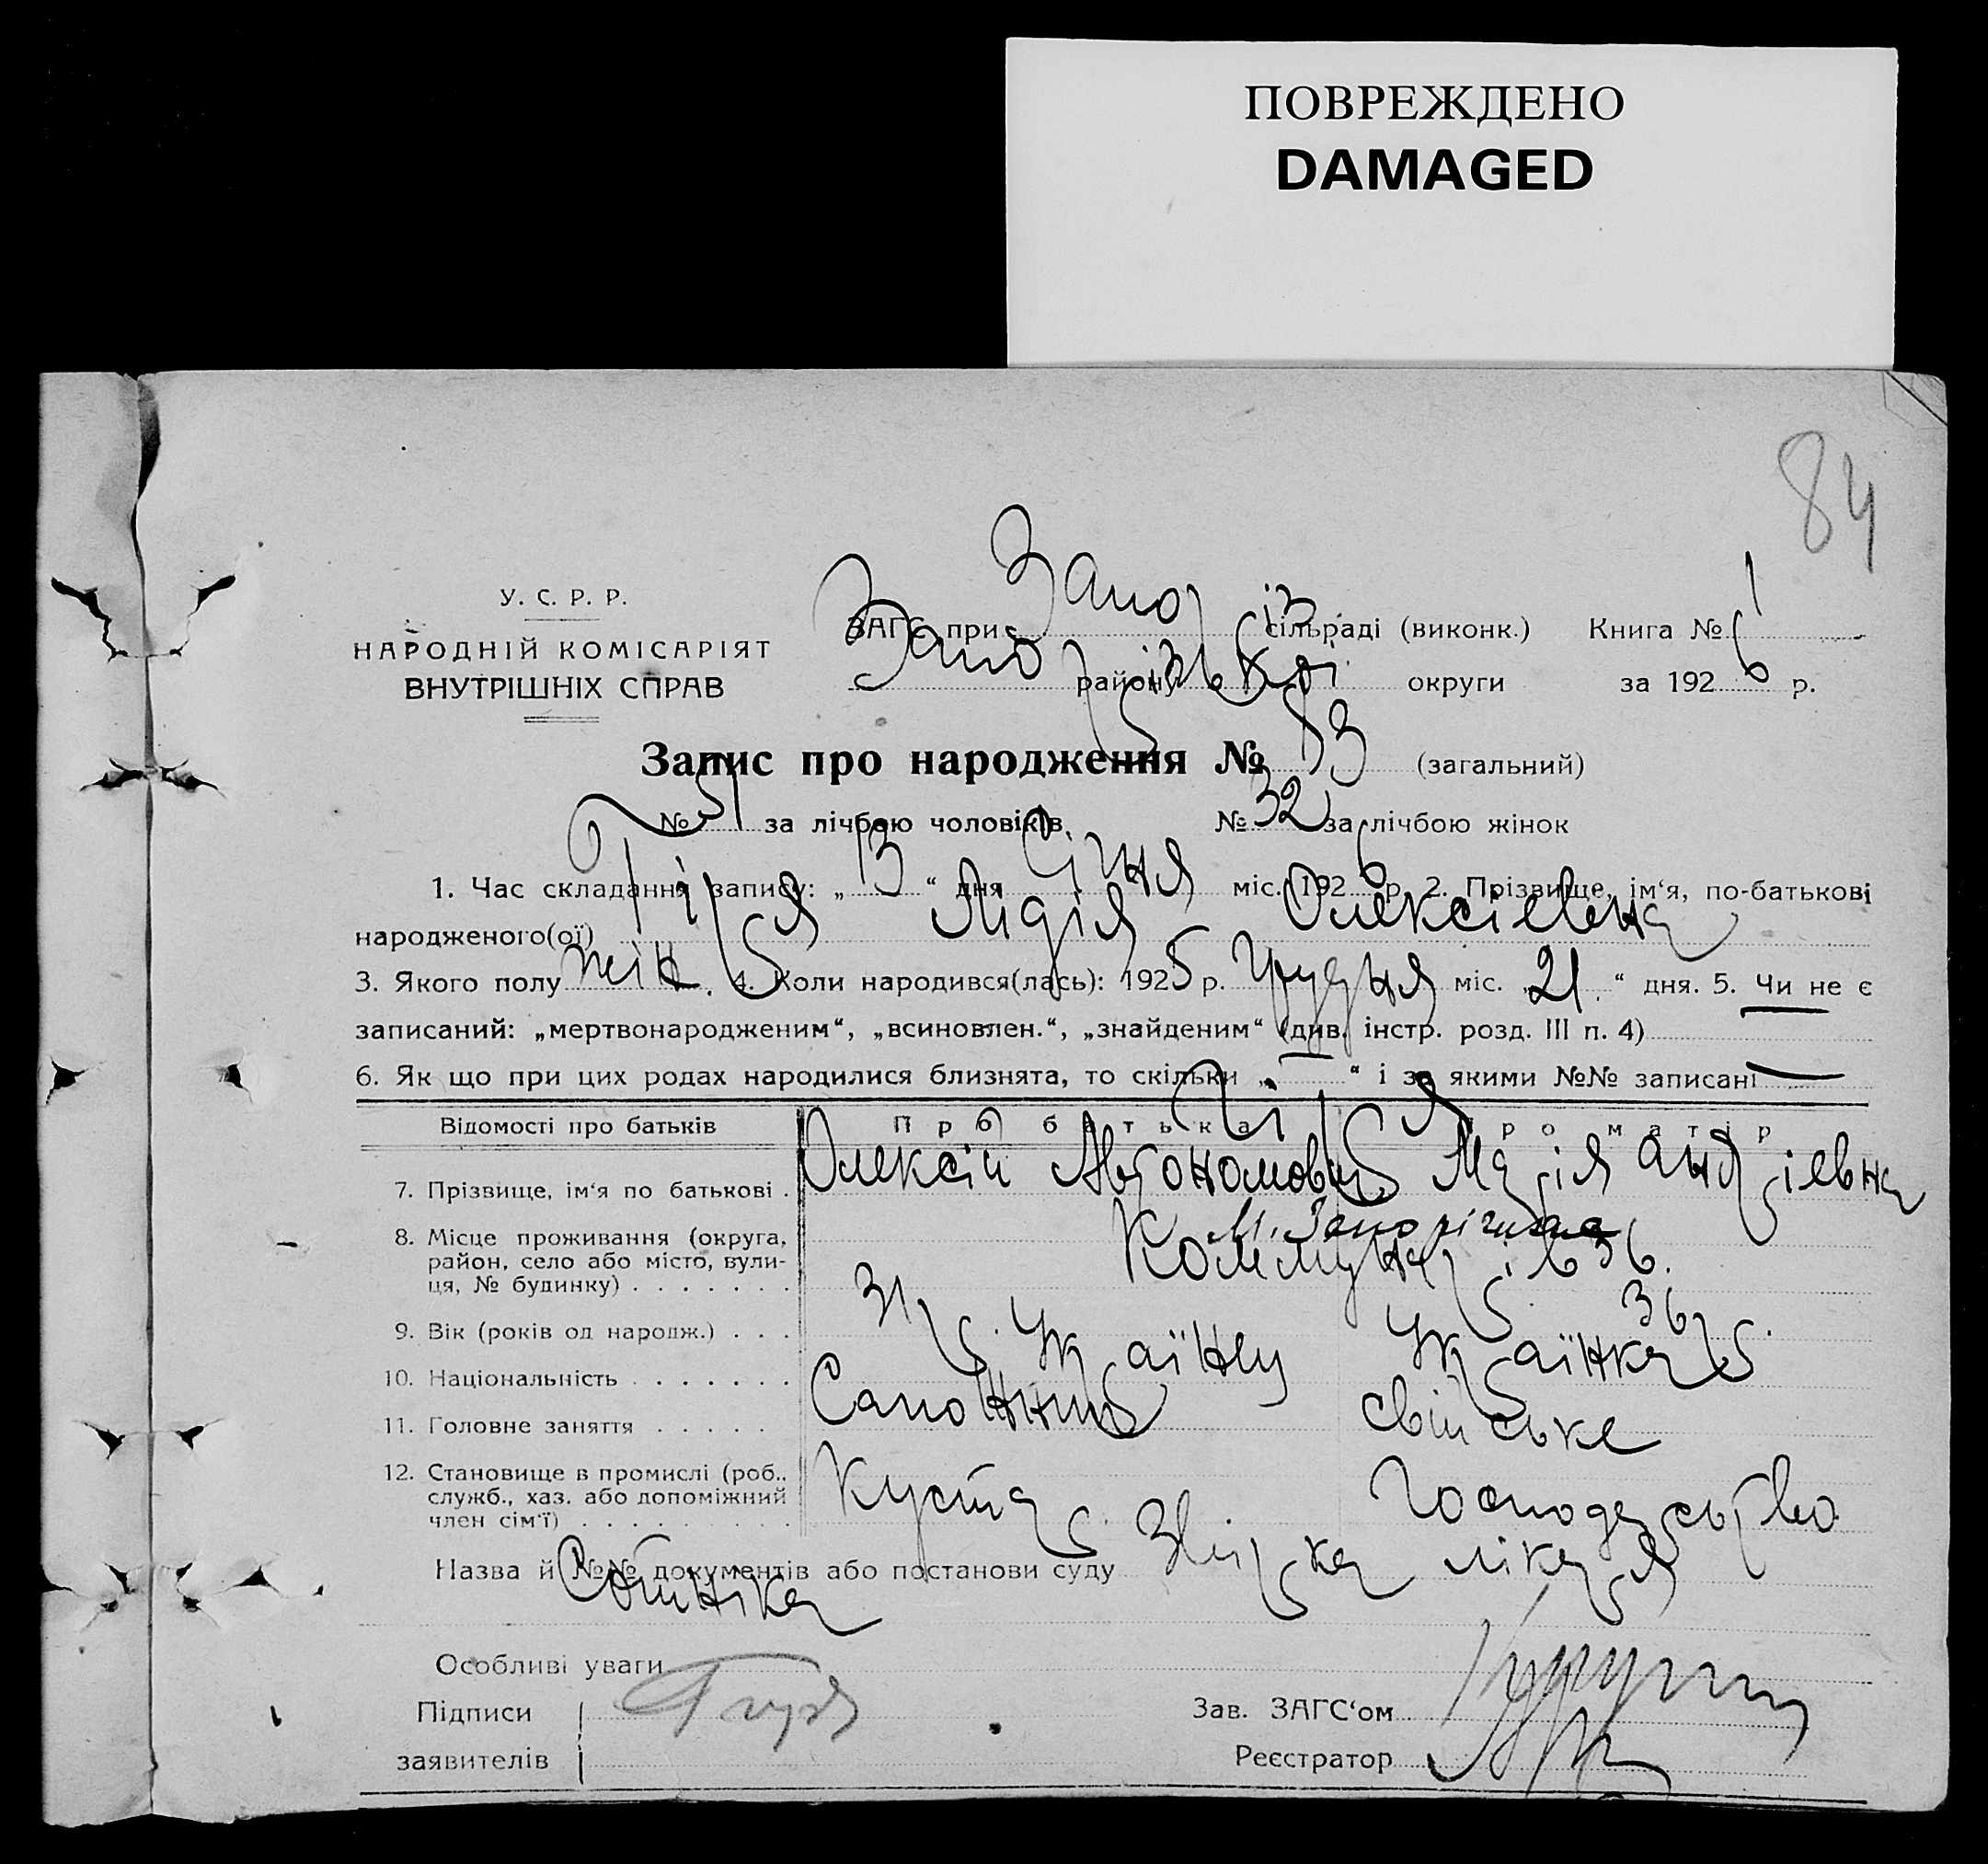 ПОВРЕЖДЕНО
DAMAGED
84
У. С. Р. Р.
НАРОДНІЙ КОМІСАРІЯТ
ВНУТРІШНІХ СПРАВ
ЗАГС при Запоріз сільраді (виконк.) Книга № 1
Запорізької району округи за 1926 р.
Запис про народження № 83 (загальний)
№ 51 за лічбою чоловіків. № 32 за лічбою жінок
1. Час складання запису: „13“ дня Січня міс. 1926 р. 2. Прізвище, ім‘я, по-батькові
народженого(ої) Гіря Лидія Олексієвена
3. Якого полу жін. 4. Коли народився(лась): 1925 р. Грудня міс. „21.“ дня. 5. Чи не є
записаний: „мертвонародженим“, „всиновлен.“, „знайденим“ (див. інстр. розд. III п. 4)
6. Як що при цих родах народилися близнята, то скільки „—“ і за якими №№ записані —
Відомості про батьків Про батька Про матір
Гіря
7. Прізвище, ім‘я по батькові . Олексій Автономович Марія Андрієвна
8. Місце проживання (округа, район, село або місто, вулиця, № будинку) . . . . . . . М. Запоріжжа
36.
9. Вік (років од народж.) . . . 31 р. 36 р.
10. Національність . . . . . . . Українец Українка
11. Головне заняття . . . . . Сапожник свійське
12. Становище в промислі (роб., служб., хаз. або допоміжний член сім‘ї) . . . . . . . . . Кустар. Господарство
Назва й №№ документів або постанови суду Звірка лікаря
Сотніка
Особливі уваги
Підписи заявителів Гиря
Зав. ЗАГС‘ом
Реєстратор